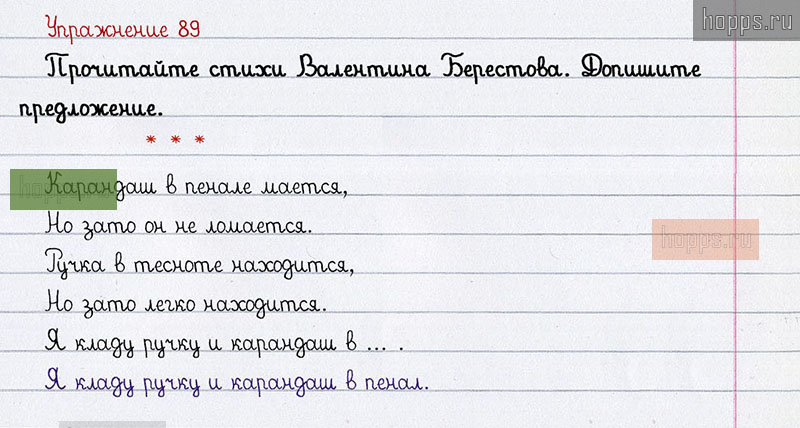 hopps.ru
Упражнение 89
Прочитайте стихи Валентина Берестова. Допишите
предложение.
* * *
hopps.ru
Карандаш в пенале мается,
Но зато он не ломается.
hopps.ru
Ручка в тесноте находится,
Но зато легко находится.
Я кладу ручку и карандаш в ... .
Я кладу ручку и карандаш в пенал.